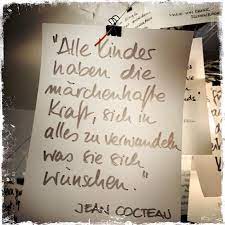 "Alle Kinder
haben die
märchenhafte
Kraft, sich in
alles zu verwandeln
was sie sich
wünschen."
JEAN COCTEAU